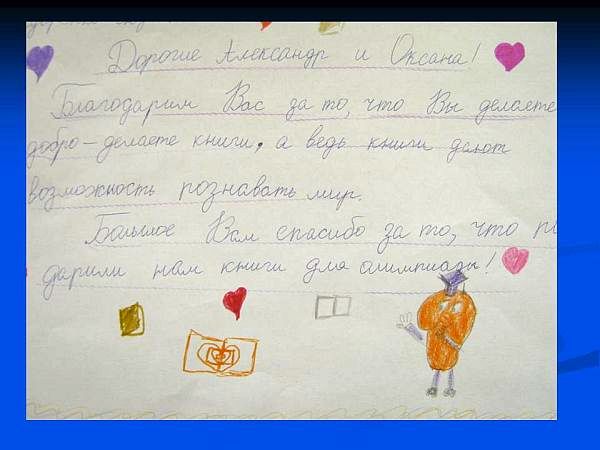 Дорогие Александр и Оксана!
Благодарим Вас за то, что Вы делаете
добро - делаете книги, а ведь книги дают
возможность познавать мир.
Большое Вам спасибо за то, что
дарили нам книги для олимпиады!